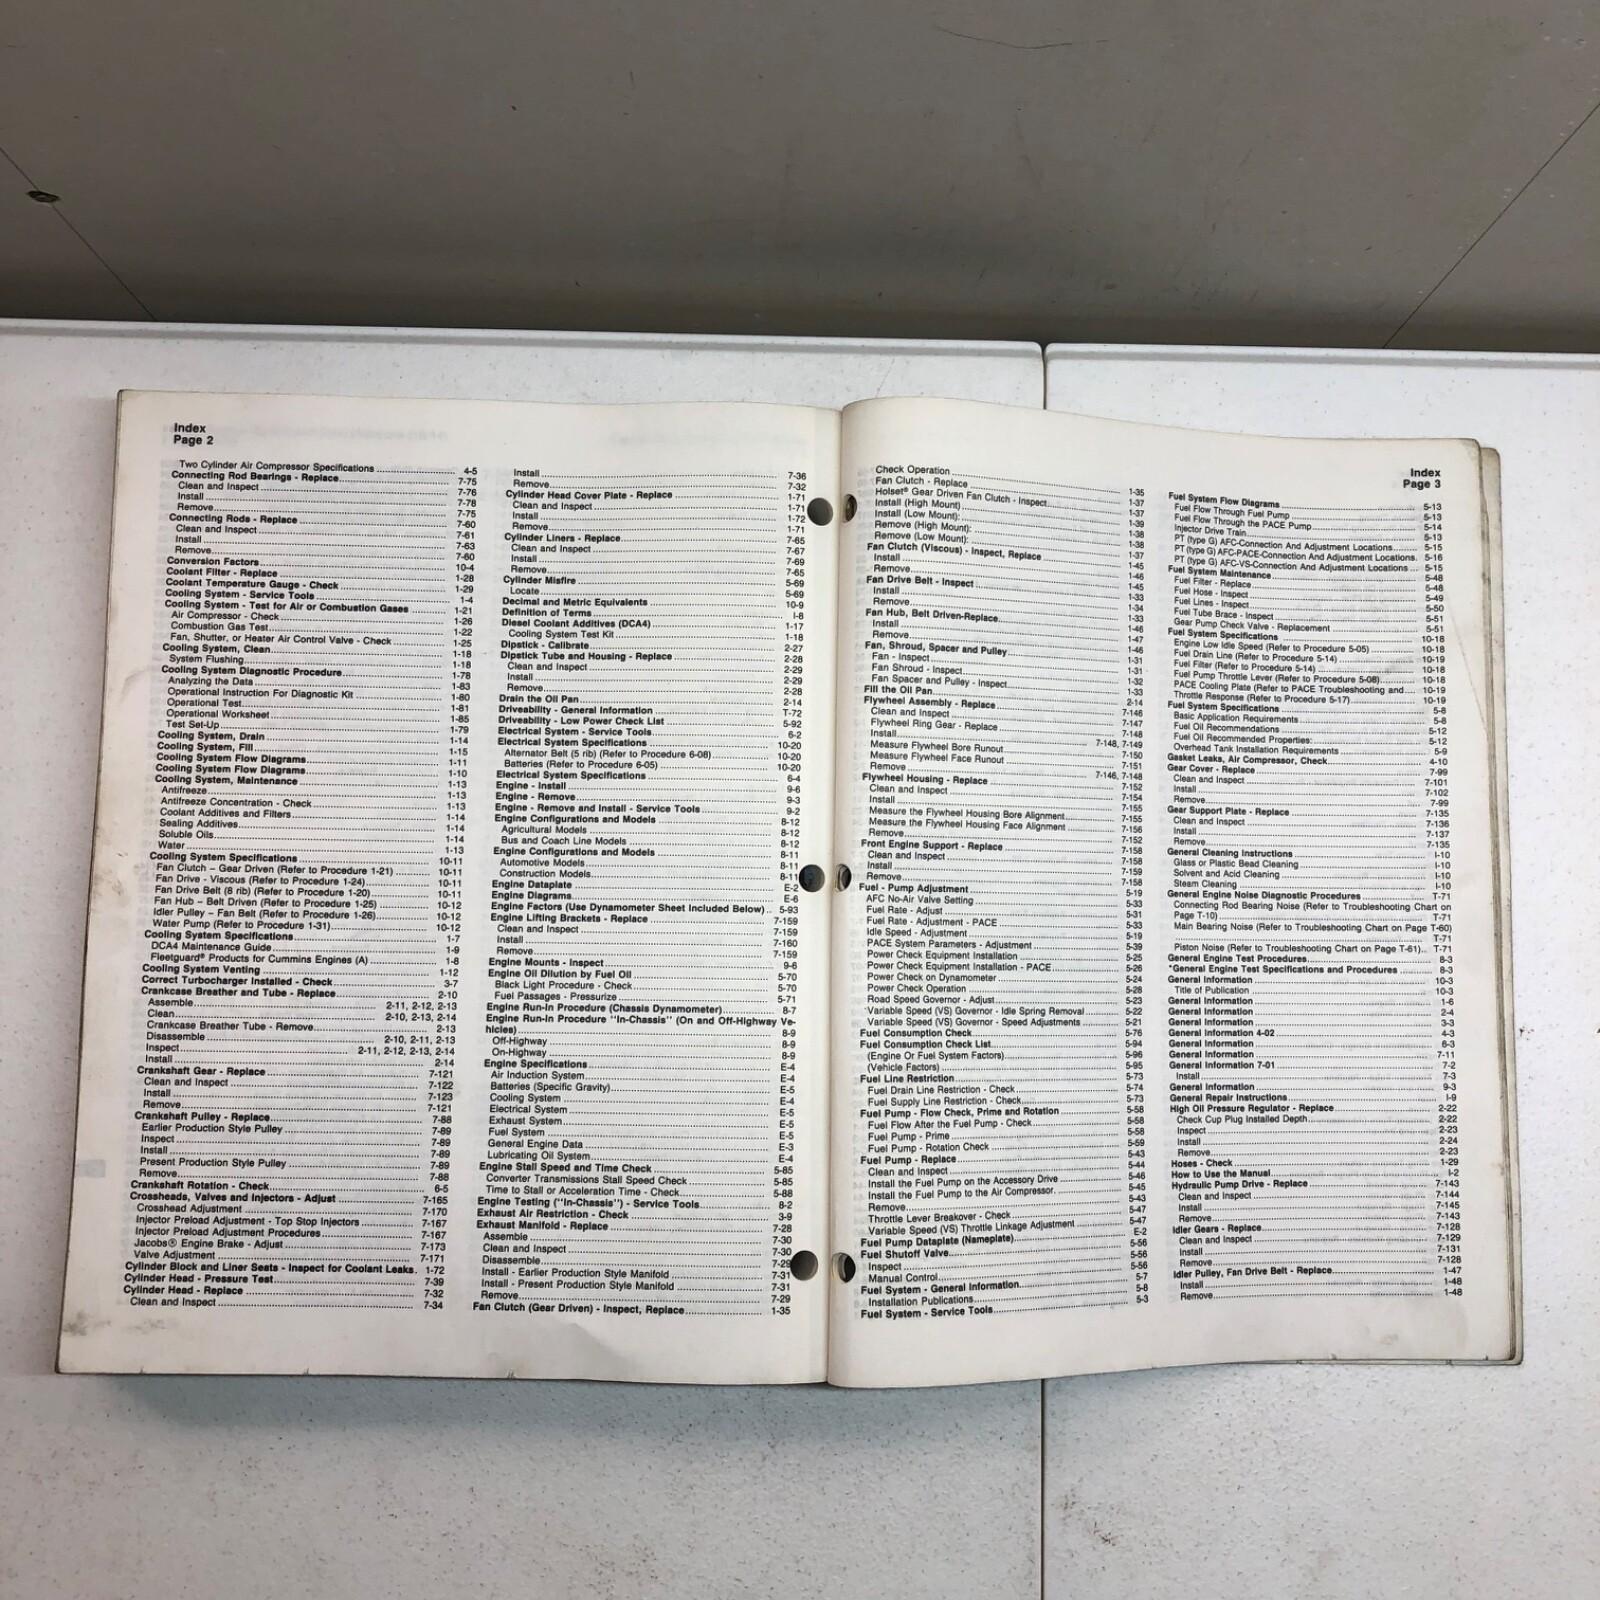 Index
Page 2
Two Cylinder Air Compressor Specifications 4-5
Connecting Rod Bearings - Replace 7-75
Clean and Inspect 7-76
Install 7-78
Remove 7-75
Connecting Rods - Replace 7-60
Clean and Inspect 7-61
Install 7-63
Remove 7-60
Conversion Factors 10-4
Coolant Filter - Replace 1-28
Coolant Temperature Gauge - Check 1-29
Cooling System - Service Tools 1-4
Cooling System - Test for Air or Combustion Gases 1-21
Air Compressor - Check 1-26
Combustion Gas Test 1-22
Fan, Shutter, or Heater Air Control Valve - Check 1-25
Cooling System, Clean 1-18
System Flushing 1-18
Cooling System Diagnostic Procedure 1-78
Analyzing the Data 1-83
Operational Instruction For Diagnostic Kit 1-80
Operational Test 1-81
Operational Worksheet 1-85
Test Set-Up 1-79
Cooling System, Drain 1-14
Cooling System, Fill 1-15
Cooling System Flow Diagrams 1-11
Cooling System Flow Diagrams 1-10
Cooling System, Maintenance 1-13
Antifreeze 1-13
Antifreeze Concentration - Check 1-13
Coolant Additives and Filters 1-14
Sealing Additives 1-14
Soluble Oils 1-14
Water 1-13
Cooling System Specifications 10-11
Fan Clutch – Gear Driven (Refer to Procedure 1-21) 10-11
Fan Drive - Viscous (Refer to Procedure 1-24) 10-11
Fan Drive Belt (8 rib) (Refer to Procedure 1-20) 10-11
Fan Hub – Belt Driven (Refer to Procedure 1-25) 10-12
Idler Pulley – Fan Belt (Refer to Procedure 1-26) 10-12
Water Pump (Refer to Procedure 1-31) 10-12
Cooling System Specifications 1-7
DCA4 Maintenance Guide 1-9
Fleetguard® Products for Cummins Engines (A) 1-8
Cooling System Venting 1-12
Correct Turbocharger Installed - Check 3-7
Crankcase Breather and Tube - Replace 2-10
Assemble 2-11, 2-12, 2-13
Clean 2-10, 2-13, 2-14
Crankcase Breather Tube - Remove 2-13
Disassemble 2-10, 2-11, 2-13
Inspect 2-11, 2-12, 2-13, 2-14
Install 2-14
Crankshaft Gear - Replace 7-121
Clean and Inspect 7-122
Install 7-123
Remove 7-121
Crankshaft Pulley - Replace 7-88
Earlier Production Style Pulley 7-89
Inspect 7-89
Install 7-89
Present Production Style Pulley 7-89
Remove 7-88
Crankshaft Rotation - Check 6-5
Crossheads, Valves and Injectors - Adjust 7-165
Crosshead Adjustment 7-170
Injector Preload Adjustment - Top Stop Injectors 7-167
Injector Preload Adjustment Procedures 7-167
Jacobs® Engine Brake - Adjust 7-173
Valve Adjustment 7-171
Cylinder Block and Liner Seats - Inspect for Coolant Leaks 1-72
Cylinder Head - Pressure Test 7-39
Cylinder Head - Replace 7-32
Clean and Inspect 7-34
Install 7-36
Remove 7-32
Cylinder Head Cover Plate - Replace 1-71
Clean and Inspect 1-71
Install 1-72
Remove 1-71
Cylinder Liners - Replace 7-65
Clean and Inspect 7-67
Install 7-69
Remove 7-65
Cylinder Misfire 5-69
Locate 5-69
Decimal and Metric Equivalents 10-9
Definition of Terms I-8
Diesel Coolant Additives (DCA4) 1-17
Cooling System Test Kit 1-18
Dipstick - Calibrate 2-27
Dipstick Tube and Housing - Replace 2-28
Clean and Inspect 2-29
Install 2-29
Remove 2-28
Drain the Oil Pan 2-14
Driveability - General Information T-72
Driveability - Low Power Check List 5-92
Electrical System - Service Tools 6-2
Electrical System Specifications 10-20
Alternator Belt (5 rib) (Refer to Procedure 6-08) 10-20
Batteries (Refer to Procedure 6-05) 10-20
Electrical System Specifications 6-4
Engine - Install 9-6
Engine - Remove 9-3
Engine - Remove and Install - Service Tools 9-2
Engine Configurations and Models 8-12
Agricultural Models 8-12
Bus and Coach Line Models 8-12
Engine Configurations and Models 8-11
Automotive Models 8-11
Construction Models 8-11
Engine Dataplate E-2
Engine Diagrams E-6
Engine Factors (Use Dynamometer Sheet Included Below) 5-93
Engine Lifting Brackets - Replace 7-159
Clean and Inspect 7-159
Install 7-160
Remove 7-159
Engine Mounts - Inspect 9-6
Engine Oil Dilution by Fuel Oil 5-70
Black Light Procedure - Check 5-70
Fuel Passages - Pressurize 5-71
Engine Run-In Procedure (Chassis Dynamometer) 8-7
Engine Run-In Procedure "In-Chassis" (On and Off-Highway Ve-
hicles) 8-9
Off-Highway 8-9
On-Highway 8-9
Engine Specifications E-4
Air Induction System E-4
Batteries (Specific Gravity) E-5
Cooling System E-4
Electrical System E-5
Exhaust System E-5
Fuel System E-5
General Engine Data E-3
Lubricating Oil System E-4
Engine Stall Speed and Time Check 5-85
Converter Transmissions Stall Speed Check 5-85
Time to Stall or Acceleration Time - Check 5-88
Engine Testing ("In-Chassis") - Service Tools 8-2
Exhaust Air Restriction - Check 3-9
Exhaust Manifold - Replace 7-28
Assemble 7-30
Clean and Inspect 7-30
Disassemble 7-29
Install - Earlier Production Style Manifold 7-31
Install - Present Production Style Manifold 7-31
Remove 7-29
Fan Clutch (Gear Driven) - Inspect, Replace 1-35
Index
Page 3
Check Operation 1-35
Fan Clutch - Replace 1-37
Holset® Gear Driven Fan Clutch - Inspect 1-37
Install (High Mount) 1-39
Install (Low Mount): 1-38
Remove (High Mount): 1-38
Remove (Low Mount): 1-37
Fan Clutch (Viscous) - Inspect, Replace 1-45
Install 1-46
Remove 1-45
Fan Drive Belt - Inspect 1-33
Install 1-34
Remove 1-33
Fan Hub, Belt Driven-Replace 1-46
Install 1-47
Remove 1-46
Fan, Shroud, Spacer and Pulley 1-31
Fan - Inspect 1-31
Fan Shroud - Inspect 1-32
Fan Spacer and Pulley - Inspect 1-33
Fill the Oil Pan 2-14
Flywheel Assembly - Replace 7-146
Clean and Inspect 7-147
Flywheel Ring Gear - Replace 7-148
Install 7-148, 7-149
Measure Flywheel Bore Runout 7-150
Measure Flywheel Face Runout 7-151
Remove 7-146, 7-148
Flywheel Housing - Replace 7-152
Clean and Inspect 7-154
Install 7-155
Measure the Flywheel Housing Bore Alignment 7-155
Measure the Flywheel Housing Face Alignment 7-156
Remove 7-152
Front Engine Support - Replace 7-158
Clean and Inspect 7-158
Install 7-159
Remove 7-158
Fuel - Pump Adjustment 5-19
AFC No-Air Valve Setting 5-33
Fuel Rate - Adjust 5-31
Fuel Rate - Adjustment - PACE 5-33
Idle Speed - Adjustment 5-19
PACE System Parameters - Adjustment 5-39
Power Check Equipment Installation 5-25
Power Check Equipment Installation - PACE 5-26
Power Check on Dynamometer 5-24
Power Check Operation 5-28
Road Speed Governor - Adjust 5-23
Variable Speed (VS) Governor - Idle Spring Removal 5-22
Variable Speed (VS) Governor - Speed Adjustments 5-21
Fuel Consumption Check 5-76
Fuel Consumption Check List 5-94
(Engine Or Fuel System Factors) 5-96
(Vehicle Factors) 5-95
Fuel Line Restriction 5-73
Fuel Drain Line Restriction - Check 5-74
Fuel Supply Line Restriction - Check 5-73
Fuel Pump - Flow Check, Prime and Rotation 5-58
Fuel Flow After the Fuel Pump - Check 5-58
Fuel Pump - Prime 5-58
Fuel Pump - Rotation Check 5-59
Fuel Pump - Replace 5-43
Clean and Inspect 5-44
Install the Fuel Pump on the Accessory Drive 5-46
Install the Fuel Pump to the Air Compressor 5-45
Remove 5-43
Throttle Lever Breakover - Check 5-47
Variable Speed (VS) Throttle Linkage Adjustment 5-47
Fuel Pump Dataplate (Nameplate) E-2
Fuel Shutoff Valve 5-56
Inspect 5-56
Manual Control 5-56
Fuel System - General Information 5-7
Installation Publications 5-8
Fuel System - Service Tools 5-3
Fuel System Flow Diagrams 5-13
Fuel Flow Through Fuel Pump 5-13
Fuel Flow Through the PACE Pump 5-14
Injector Drive Train 5-13
PT (type G) AFC-Connection And Adjustment Locations 5-15
PT (type G) AFC-PACE-Connection And Adjustment Locations. 5-16
PT (type G) AFC-VS-Connection And Adjustment Locations 5-15
Fuel System Maintenance 5-48
Fuel Filter - Replace 5-48
Fuel Hose - Inspect 5-49
Fuel Lines - Inspect 5-50
Fuel Tube Brace - Inspect 5-51
Gear Pump Check Valve - Replacement 5-51
Fuel System Specifications 10-18
Engine Low Idle Speed (Refer to Procedure 5-05) 10-18
Fuel Drain Line (Refer to Procedure 5-14) 10-19
Fuel Filter (Refer to Procedure 5-14) 10-18
Fuel Pump Throttle Lever (Refer to Procedure 5-08) 10-18
PACE Cooling Plate (Refer to PACE Troubleshooting and 10-19
Throttle Response (Refer to Procedure 5-17) 10-19
Fuel System Specifications 5-8
Basic Application Requirements 5-8
Fuel Oil Recommendations 5-12
Fuel Oil Recommended Properties: 5-12
Overhead Tank Installation Requirements 5-9
Gasket Leaks, Air Compressor, Check 4-10
Gear Cover - Replace 7-99
Clean and Inspect 7-101
Install 7-102
Remove 7-99
Gear Support Plate - Replace 7-135
Clean and Inspect 7-136
Install 7-137
Remove 7-135
General Cleaning Instructions I-10
Glass or Plastic Bead Cleaning I-10
Solvent and Acid Cleaning I-10
Steam Cleaning I-10
General Engine Noise Diagnostic Procedures T-71
Connecting Rod Bearing Noise (Refer to Troubleshooting Chart on
Page T-10) T-71
Main Bearing Noise (Refer to Troubleshooting Chart on Page T-60)
T-71
Piston Noise (Refer to Troubleshooting Chart on Page T-61) T-71
General Engine Test Procedures 8-3
*General Engine Test Specifications and Procedures 8-3
General Information 10-3
Title of Publication 10-3
General Information 1-6
General Information 2-4
General Information 3-3
General Information 4-02 4-3
General Information 6-3
General Information 7-11
General Information 7-01 7-2
Install 7-3
General Information 9-3
General Repair Instructions I-9
High Oil Pressure Regulator - Replace 2-22
Check Cup Plug Installed Depth 2-22
Inspect 2-23
Install 2-24
Remove 2-23
Hoses - Check 1-29
How to Use the Manual I-2
Hydraulic Pump Drive - Replace 7-143
Clean and Inspect 7-144
Install 7-145
Remove 7-143
Idler Gears - Replace 7-128
Clean and Inspect 7-129
Install 7-131
Remove 7-128
Idler Pulley, Fan Drive Belt - Replace 1-47
Install 1-48
Remove 1-48